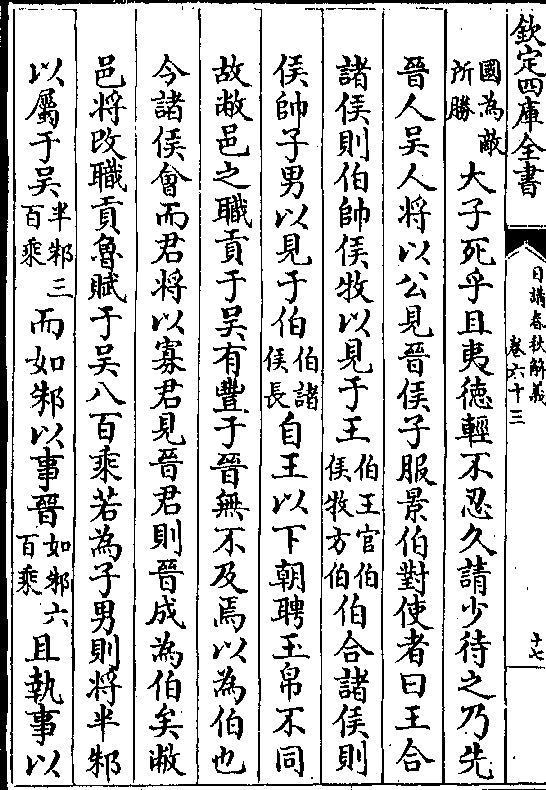 欽定四庫全書
日講春秋解義 卷六十三
十七
國為敵所勝大子死乎且夷德輕不忍久請少待之乃先
晉人吳人將以公見晉侯子服景伯對使者曰王合
諸侯則伯帥侯牧以見于王伯王官伯侯牧方伯伯合諸侯則
侯帥子男以見于伯伯諸侯長自王以下朝聘玉帛不同
故敝邑之職貢于吳有豐于晉無不及焉以為伯也
今諸侯會而君將以寡君見晉君則晉成為伯矣敝
邑將改職貢魯賦于吳八百乘若為子男則將半邾
以屬于吳半邾三百乘而如邾以事晉如邾六百乘且執事以